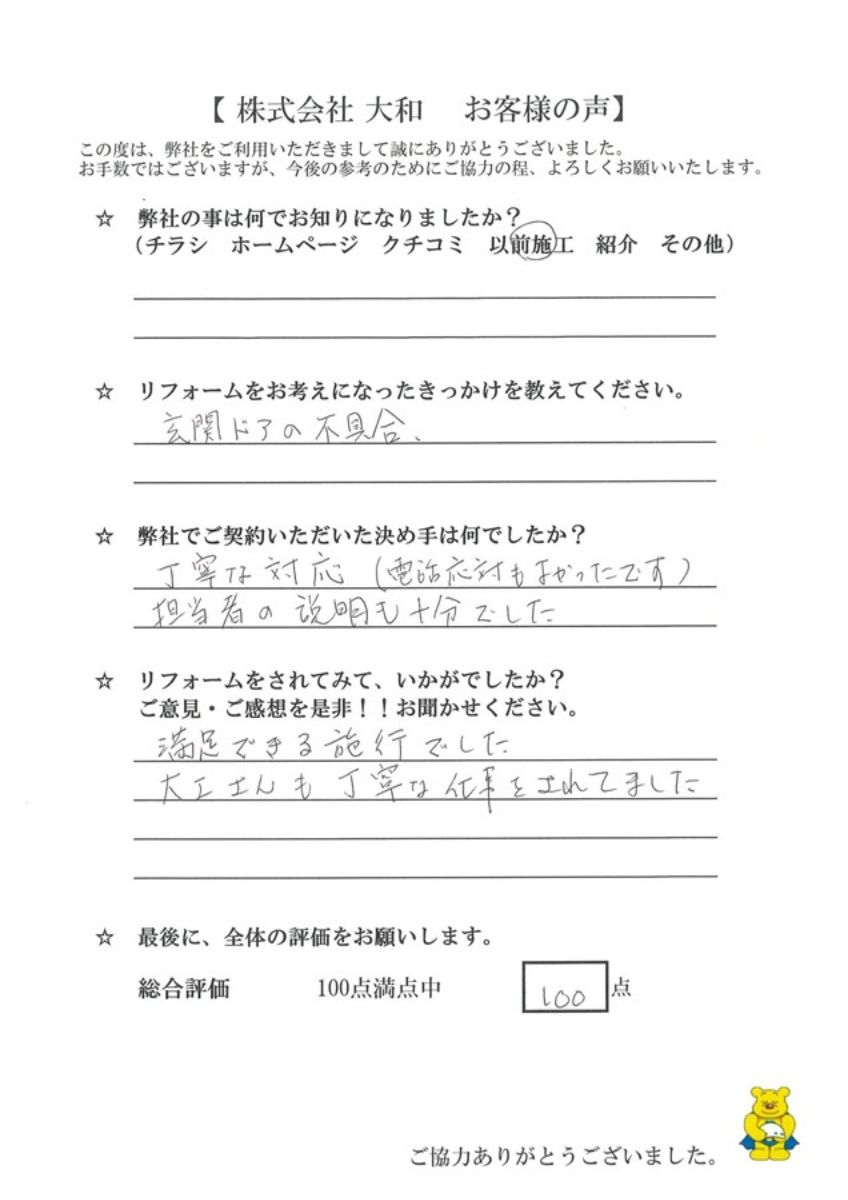 【 株式会社 大和　お客様の声】
この度は、弊社をご利用いただきまして誠にありがとうございました。
お手数ではございますが、今後の参考のためにご協力の程、よろしくお願いいたします。
☆　弊社の事は何でお知りになりましたか？
（チラシ　ホームページ　クチコミ　以前施工　紹介　その他）
☆　リフォームをお考えになったきっかけを教えてください。
玄関ドアの不具合、
☆　弊社でご契約いただいた決め手は何でしたか？
丁寧な対応（電話応対もよかったです）
担当者の説明も十分でした
☆　リフォームをされてみて、いかがでしたか？
ご意見・ご感想を是非！！お聞かせください。
満足できる施行でした
大工さんも丁寧な仕事をされてました
☆　最後に、全体の評価をお願いします。
総合評価　100点満点中　100点
ご協力ありがとうございました。